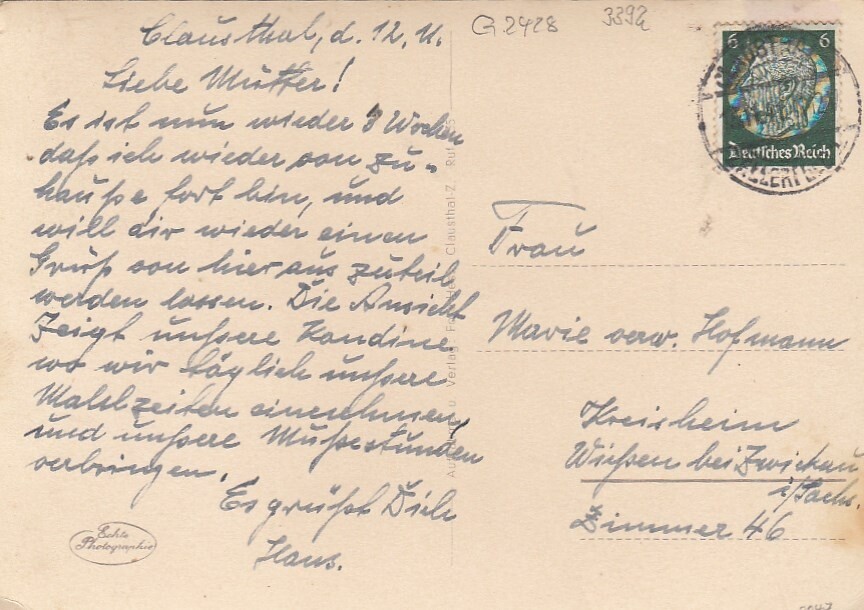 G 2428
3392
Clausthal, d. 12. 11.
Liebe Mutter!
Es ist nun wieder 8 Wochen
daß ich wieder von zu-
hauße fort bin, und
will dir wieder einen
Gruß von hier aus zuteil
werden lassen. Die Ansicht
Zeigt unßere Kandine
wo wir täglich unßere
Mahlzeiten einnehmen
und unßere Mußestunden
verbringen.
Es grüßt Dich
Hans.
Echte
Photographie
Verlag
Clausthal-Z.
6 6
Deutsches Reich
Frau
Marie verw. Hofmann
Kreisheim
Wießen bei Zwickau
i/Sachs.
Zimmer 46